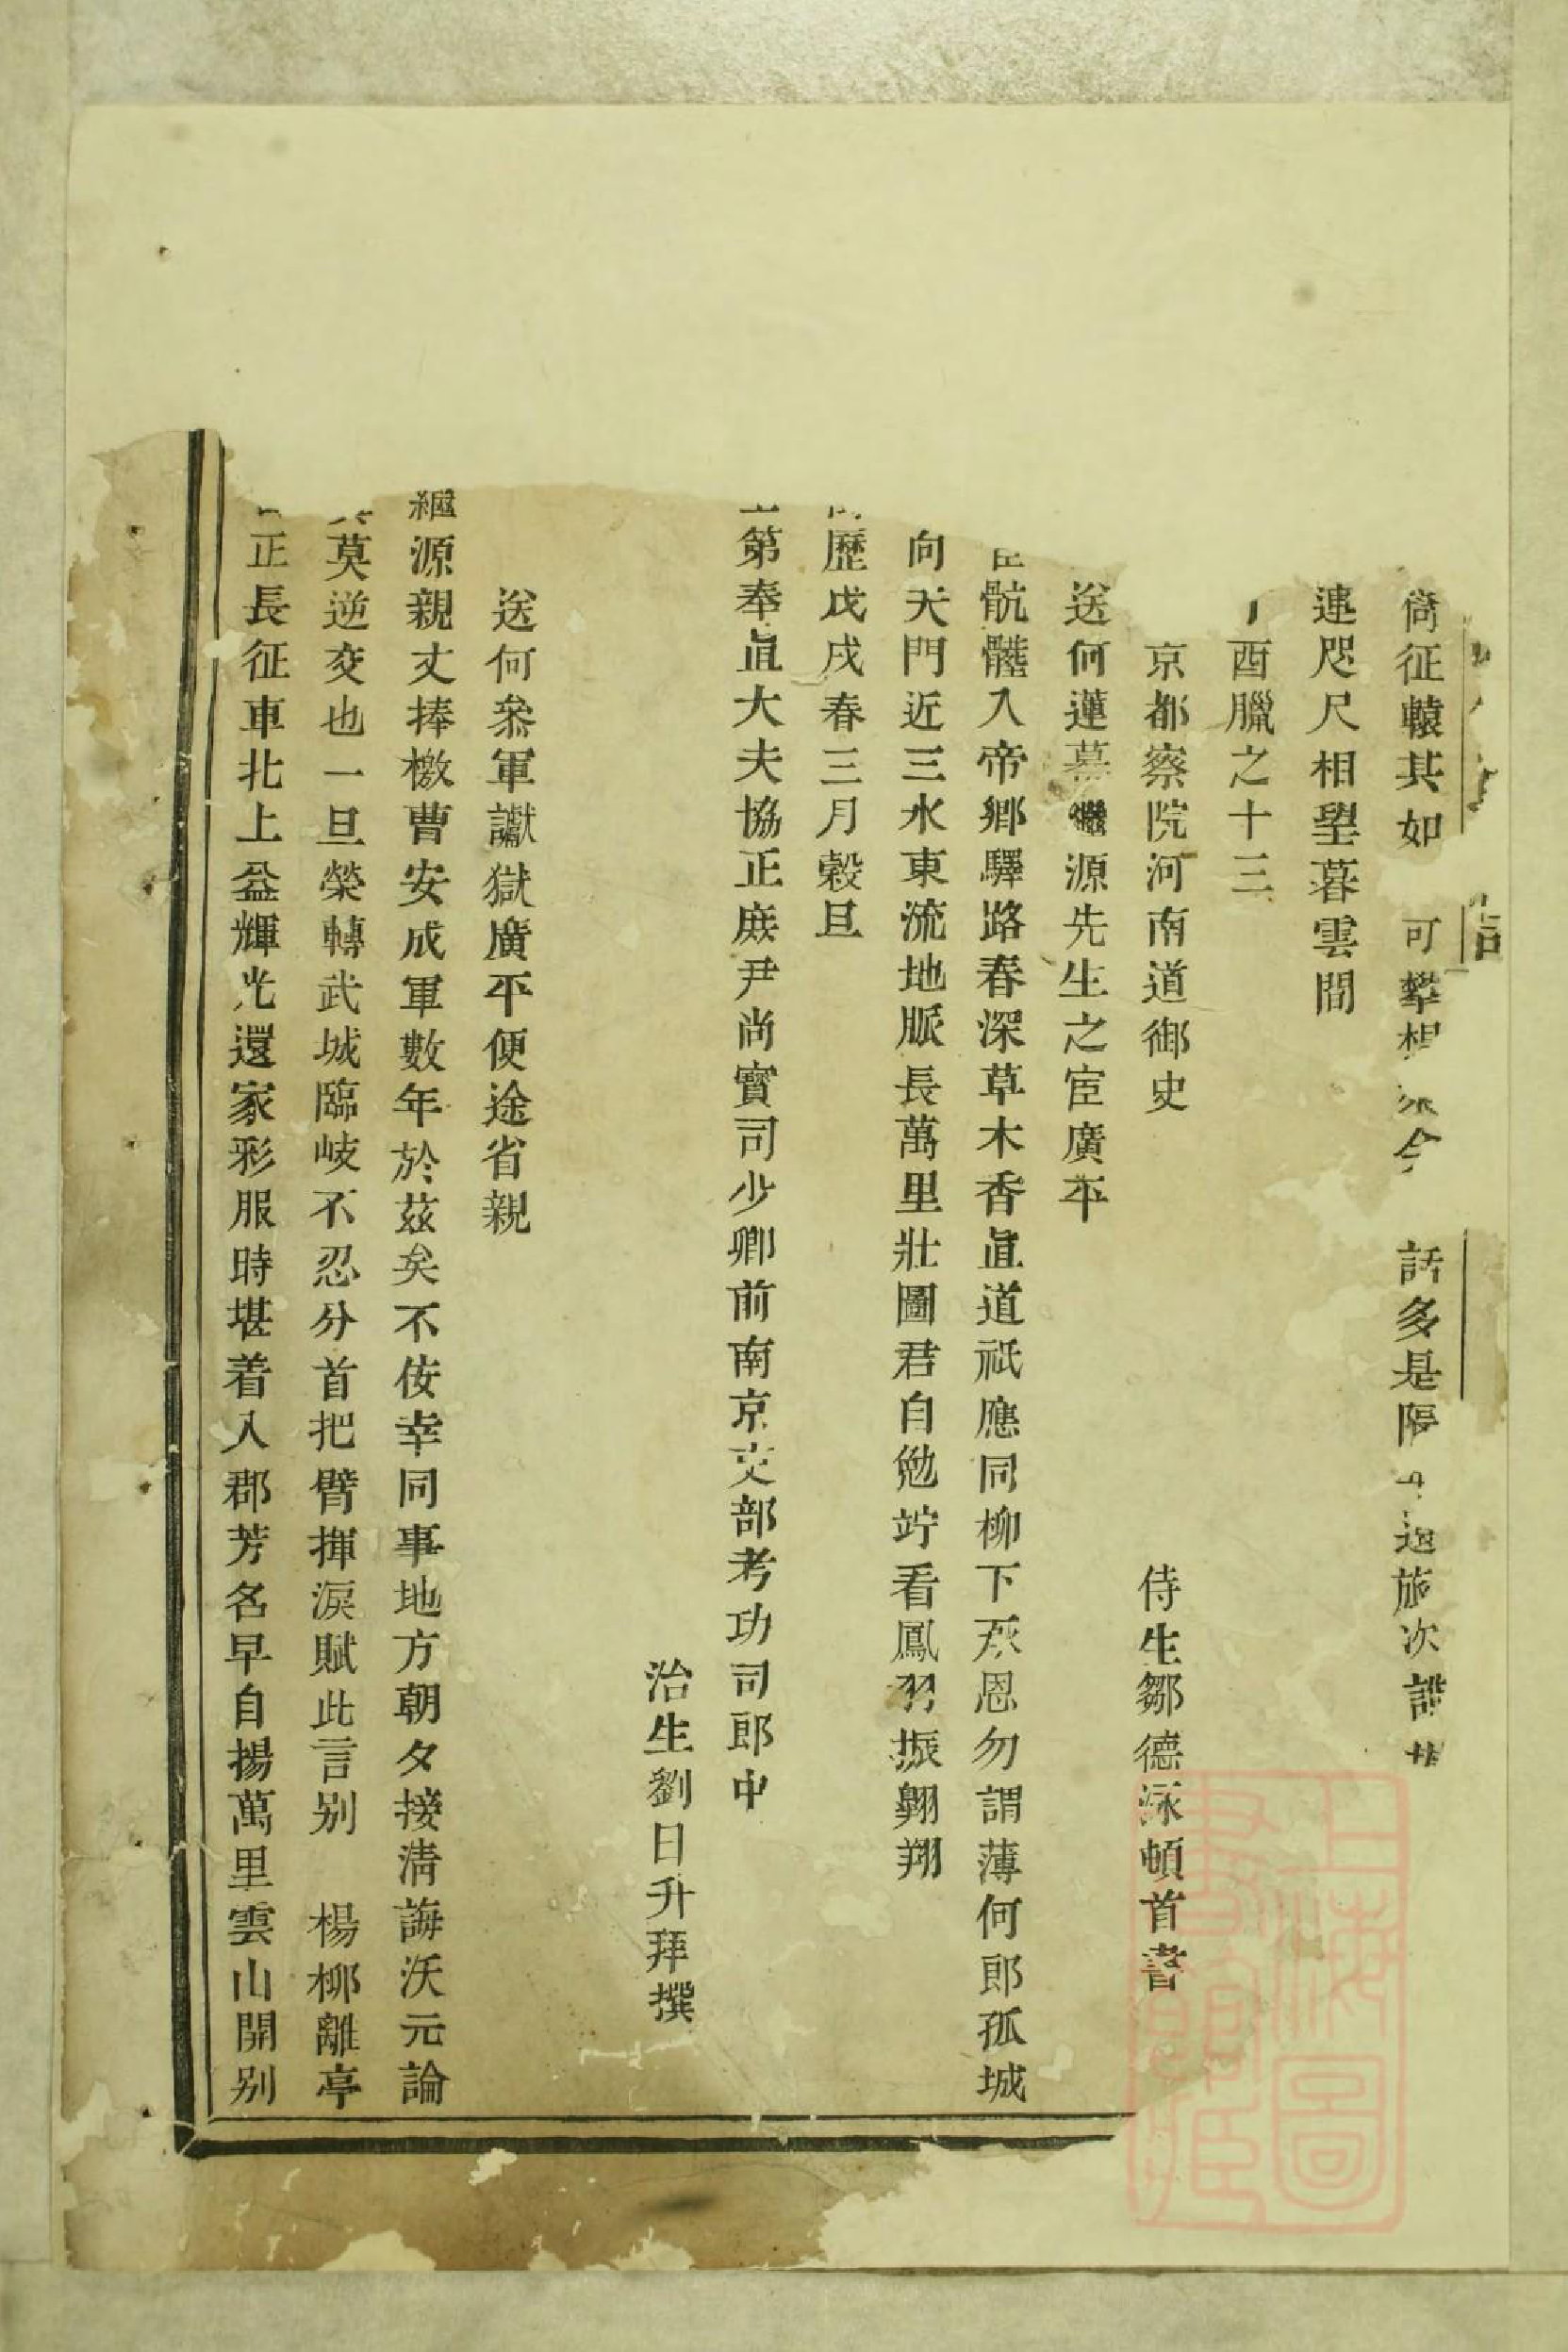 尚征轅其如 可攀想 今 話多是隔 過旅次
連咫尺相望暮雲間
酉臘之十三
京都察院河南道御史 侍生鄒德泳頓首書
送何蓮幕繼源先生之宦廣平
骯髒入帝鄉驛路春深草木香直道祇應同柳下承恩勿謂薄何郎孤城
向天門近三水東流地脈長萬里壯圖君自勉竚看鳳羽振翺翔
曆戊戌春三月穀旦
第奉直大夫協正庶尹尚寶司少卿前南京吏部考功司郎中
治生劉日升拜撰
送何叅軍讞獄廣平便途省親
繼源親丈捧檄曹安成軍數年於茲矣不佞幸同事地方朝夕接清誨沃元論
莫逆交也一旦榮轉武城臨岐不忍分首把臂揮淚賦此言别 楊柳離亭
正長征車北上益輝光還家彩服時堪着入郡芳名早自揚萬里雲山開别
上海圖書館藏